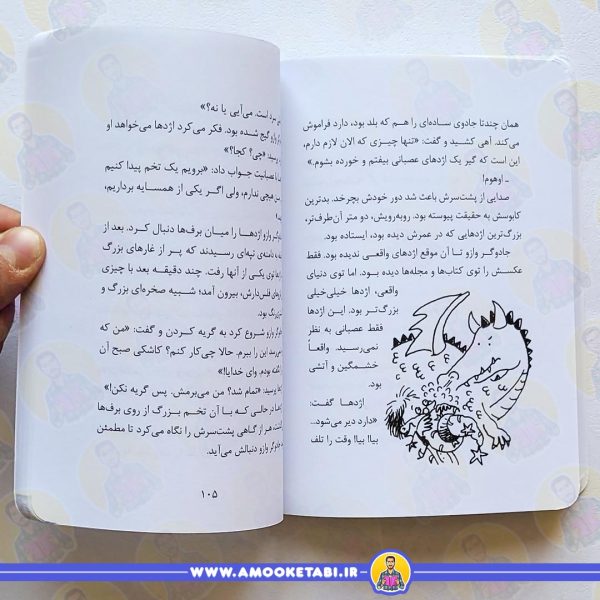 همان چندتا جادوی ساده‌ای را هم که بلد بود، دارد فراموش
می‌کند. آهی کشید و گفت: «تنها چیزی که الان لازم دارم،
این است که گیر یک اژدهای عصبانی بیفتم و خورده بشوم.»
ـ اوهوم!
صدایی از پشت‌سرش باعث شد دور خودش بچرخد. بدترین
کابوسش به حقیقت پیوسته بود. روبه‌رویش، دو متر آن‌طرف‌تر،
بزرگ‌ترین اژدهایی که در عمرش دیده بود، ایستاده بود.
جادوگر وازو تا آن موقع اژدهای واقعی ندیده بود. فقط
عکسش را توی کتاب‌ها و مجله‌ها دیده بود. اما توی دنیای
واقعی، اژدها خیلی‌خیلی
بزرگ‌تر بود. این اژدها
فقط عصبانی به نظر
نمی‌رسید. واقعاً
خشمگین و آتشی
بود.
اژدها گفت:
«دارد دیر می‌شود..
بیا! بیا! وقت را تلف
سرد است. می‌آیی یا نه؟»
وازو گیج شده بود. فکر می‌کرد اژدها می‌خواهد او
پرسید: «چی؟ کجا؟»
با عصبانیت جواب داد: «برویم یک تخم پیدا کنیم
هیچی ندارم، ولی اگر یکی از همسایه برداریم،
وازو اژدها را میان برف‌ها دنبال کرد. بعد از
دامنه‌ی تپه‌ای رسیدند که پر از غارهای بزرگ
توی یکی از آنها رفت. چند دقیقه بعد با چیزی
فلس‌دارش، بیرون آمد؛ شبیه صخره‌ای بزرگ و
وازو شروع کرد به گریه کردن و گفت: «من که
این را ببرم. حالا چی‌کار کنم؟ کاشکی صبح آن
بودم. وای خدایا!»
پرسید: «تمام شد؟ من می‌برمش. پس گریه نکن!»
در حالی که با آن تخم بزرگ از روی برف‌ها
هر از گاهی پشت‌سرش را نگاه می‌کرد تا مطمئن
وازو دنبالش می‌آید.
۱۰۵
WWW.AMOOKETABI.IR